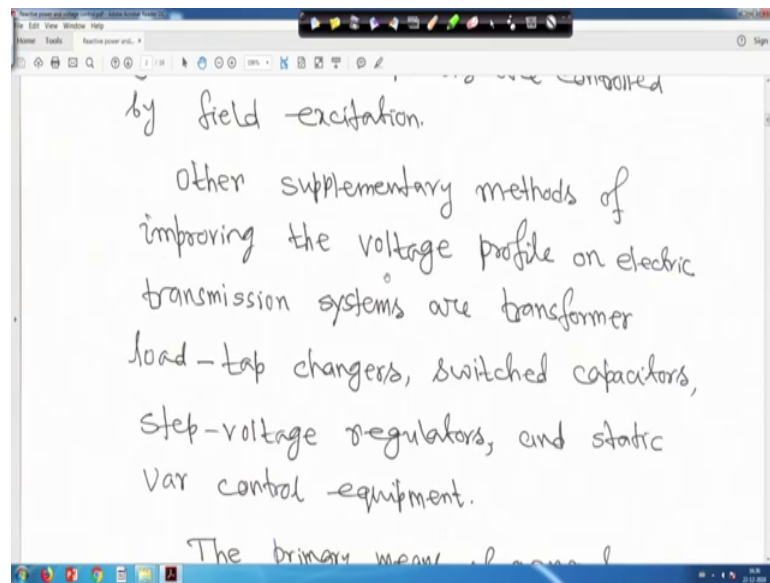 Reactive power and voltage control.pdf - Adobe Acrobat Reader DC
File Edit View Window Help
Home Tools Reactive power and... × Sign
are controlled
by field excitation.
Other supplementary methods of
improving the voltage profile on electric
transmission systems are transformer
load-tap changers, switched capacitors,
step-voltage regulators, and static
var control equipment.
The primary means of